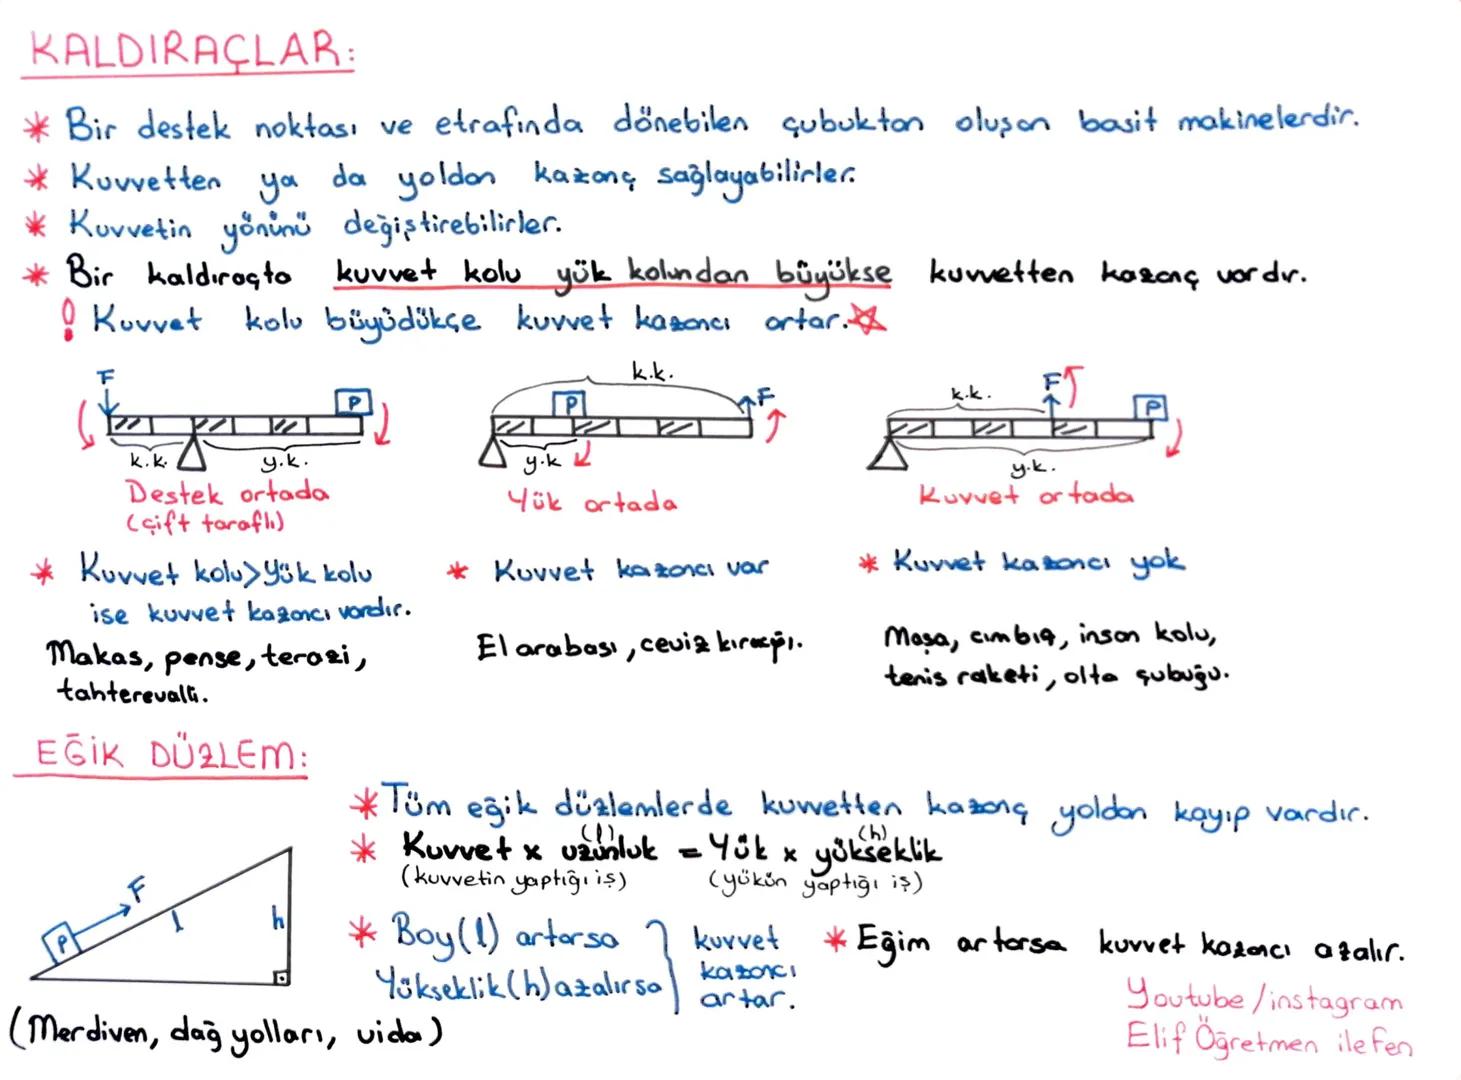 KALDIRAÇLAR:
* Bir destek noktası ve etrafında dönebilen çubuktan oluşan basit makinelerdir.
* Kuvvetten ya da yoldan kazanç sağlayabilirler.
* Kuvvetin yönünü değiştirebilirler.
* Bir kaldıraçta kuvvet kolu yük kolundan büyükse kuvvetten kazanç vardır.
! Kuvvet kolu büyüdükçe kuvvet kazancı artar.
F P k.k. y.k.
Destek ortada
(çift taraflı)
k.k. P F y.k
Yük ortada
k.k. F P y.k.
Kuvvet ortada
* Kuvvet kolu>Yük kolu
ise kuvvet kazancı vardır.
Makas, pense, terazi,
tahterevalli.
* Kuvvet kazancı var
El arabası, ceviz kıracağı.
* Kuvvet kazancı yok
Maşa, cımbız, insan kolu,
tenis raketi, olta çubuğu.
EĞİK DÜZLEM:
P F l h
(Merdiven, dağ yolları, vida)
* Tüm eğik düzlemlerde kuvvetten kazanç yoldan kayıp vardır.
(l) (h)
* Kuvvet x uzunluk = Yük x yükseklik
(kuvvetin yaptığı iş) (yükün yaptığı iş)
* Boy(l) artarsa
Yükseklik(h) azalırsa
kuvvet
kazancı
artar.
* Eğim artarsa kuvvet kazancı azalır.
Youtube/instagram
Elif Öğretmen ile Fen